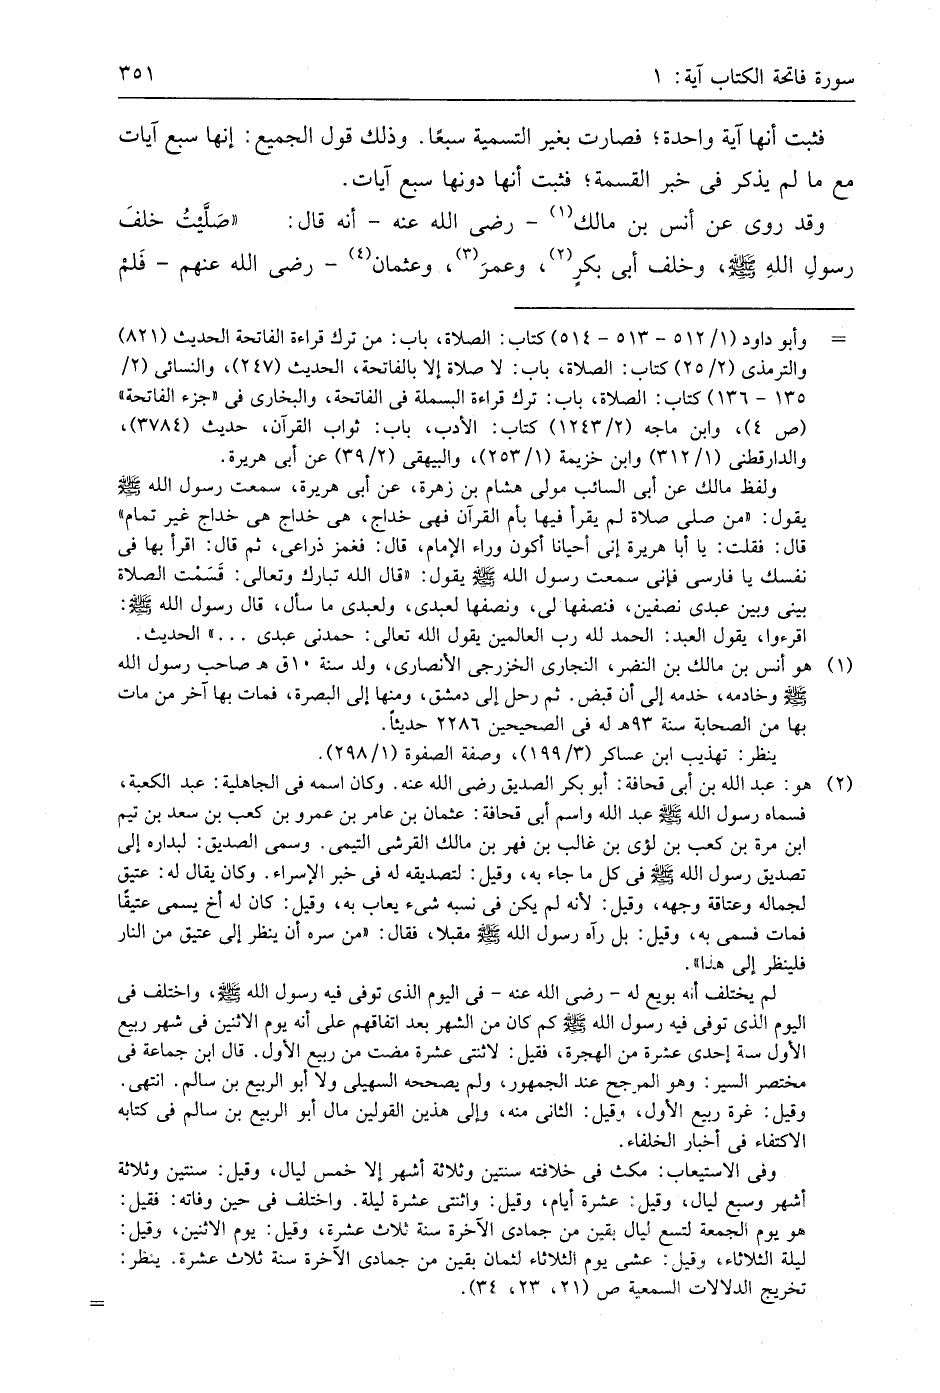 سورة فاتحة الكتاب آية: ١
٣٥١
فثبت أنها آية واحدة؛ فصارت بغير التسمية سبعًا. وذلك قول الجميع: إنها سبع آيات
مع ما لم يذكر فى خبر القسمة؛ فثبت أنها دونها سبع آيات.
وقد روى عن أنس بن مالك(١) - رضى الله عنه - أنه قال: «صَلَّيْتُ خلفَ
رسولِ اللهِ ﷺ، وخلف أبى بكرٍ(٢)، وعمرَ(٣)، وعثمان(٤) - رضى الله عنهم - فَلمْ
= وأبو داود (١/ ٥١٢ - ٥١٣ - ٥١٤) كتاب: الصلاة، باب: من ترك قراءة الفاتحة الحديث (٨٢١)
والترمذى (٢/ ٢٥) كتاب: الصلاة، باب: لا صلاة إلا بالفاتحة، الحديث (٢٤٧)، والنسائى (٢/
١٣٥ - ١٣٦) كتاب: الصلاة، باب: ترك قراءة البسملة فى الفاتحة، والبخارى فى «جزء الفاتحة»
(ص ٤)، وابن ماجه (٢/ ١٢٤٣) كتاب: الأدب، باب: ثواب القرآن، حديث (٣٧٨٤)،
والدارقطنى (١/ ٣١٢) وابن خزيمة (١/ ٢٥٣)، والبيهقى (٢/ ٣٩) عن أبى هريرة.
ولفظ مالك عن أبى السائب مولى هشام بن زهرة، عن أبى هريرة، سمعت رسول الله ﷺ
يقول: «من صلى صلاة لم يقرأ فيها بأم القرآن فهى خداج، هى خداج هى خداج غير تمام»
قال: فقلت: يا أبا هريرة إنى أحيانا أكون وراء الإمام، قال: فغمز ذراعى، ثم قال: اقرأ بها فى
نفسك يا فارسى فإنى سمعت رسول الله ﷺ يقول: «قال الله تبارك وتعالى: قَسَمْت الصلاة
بينى وبين عبدى نصفين، فنصفها لى، ونصفها لعبدى، ولعبدى ما سأل، قال رسول الله ﷺ:
اقرءوا، يقول العبد: الحمد لله رب العالمين يقول الله تعالى: حمدنى عبدى ...» الحديث.
(١) هو أنس بن مالك بن النضر، النجارى الخزرجى الأنصارى، ولد سنة ١٠ق هـ صاحب رسول الله
ﷺ وخادمه، خدمه إلى أن قبض. ثم رحل إلى دمشق، ومنها إلى البصرة، فمات بها آخر من مات
بها من الصحابة سنة ٩٣هـ له فى الصحيحين ٢٢٨٦ حديثاً.
ينظر: تهذيب ابن عساكر (٣/ ١٩٩)، وصفة الصفوة (١/ ٢٩٨).
(٢) هو: عبد الله بن أبى قحافة: أبو بكر الصديق رضى الله عنه. وكان اسمه فى الجاهلية: عبد الكعبة،
فسماه رسول الله ﷺ عبد الله واسم أبى قحافة: عثمان بن عامر بن عمرو بن كعب بن سعد بن تيم
ابن مرة بن كعب بن لؤى بن غالب بن فهر بن مالك القرشى التيمى. وسمى الصديق: لبداره إلى
تصديق رسول الله ﷺ فى كل ما جاء به، وقيل: لتصديقه له فى خبر الإسراء. وكان يقال له: عتيق
لجماله وعتاقة وجهه، وقيل: لأنه لم يكن فى نسبه شىء يعاب به، وقيل: كان له أخ يسمى عتيقًا
فمات فسمى به، وقيل: بل رآه رسول الله ﷺ مقبلا، فقال: «من سره أن ينظر إلى عتيق من النار
فلينظر إلى هذا».
لم يختلف أنه بويع له - رضى الله عنه - فى اليوم الذى توفى فيه رسول الله ﷺ، واختلف فى
اليوم الذى توفى فيه رسول الله ﷺ كم كان من الشهر بعد اتفاقهم على أنه يوم الاثنين فى شهر ربيع
الأول سنة إحدى عشرة من الهجرة، فقيل: لاثنتى عشرة مضت من ربيع الأول. قال ابن جماعة فى
مختصر السير: وهو المرجح عند الجمهور، ولم يصححه السهيلى ولا أبو الربيع بن سالم. انتهى.
وقيل: غرة ربيع الأول، وقيل: الثانى منه، وإلى هذين القولين مال أبو الربيع بن سالم فى كتابه
الاكتفاء فى أخبار الخلفاء.
وفى الاستيعاب: مكث فى خلافته سنتين وثلاثة أشهر إلا خمس ليال، وقيل: سنتين وثلاثة
أشهر وسبع ليال، وقيل: عشرة أيام، وقيل: واثنتى عشرة ليلة. واختلف فى حين وفاته: فقيل:
هو يوم الجمعة لتسع ليال بقين من جمادى الآخرة سنة ثلاث عشرة، وقيل: يوم الاثنين، وقيل:
ليلة الثلاثاء، وقيل: عشى يوم الثلاثاء لثمان بقين من جمادى الآخرة سنة ثلاث عشرة. ينظر:
تخريج الدلالات السمعية ص (٢١، ٢٣، ٣٤).
=